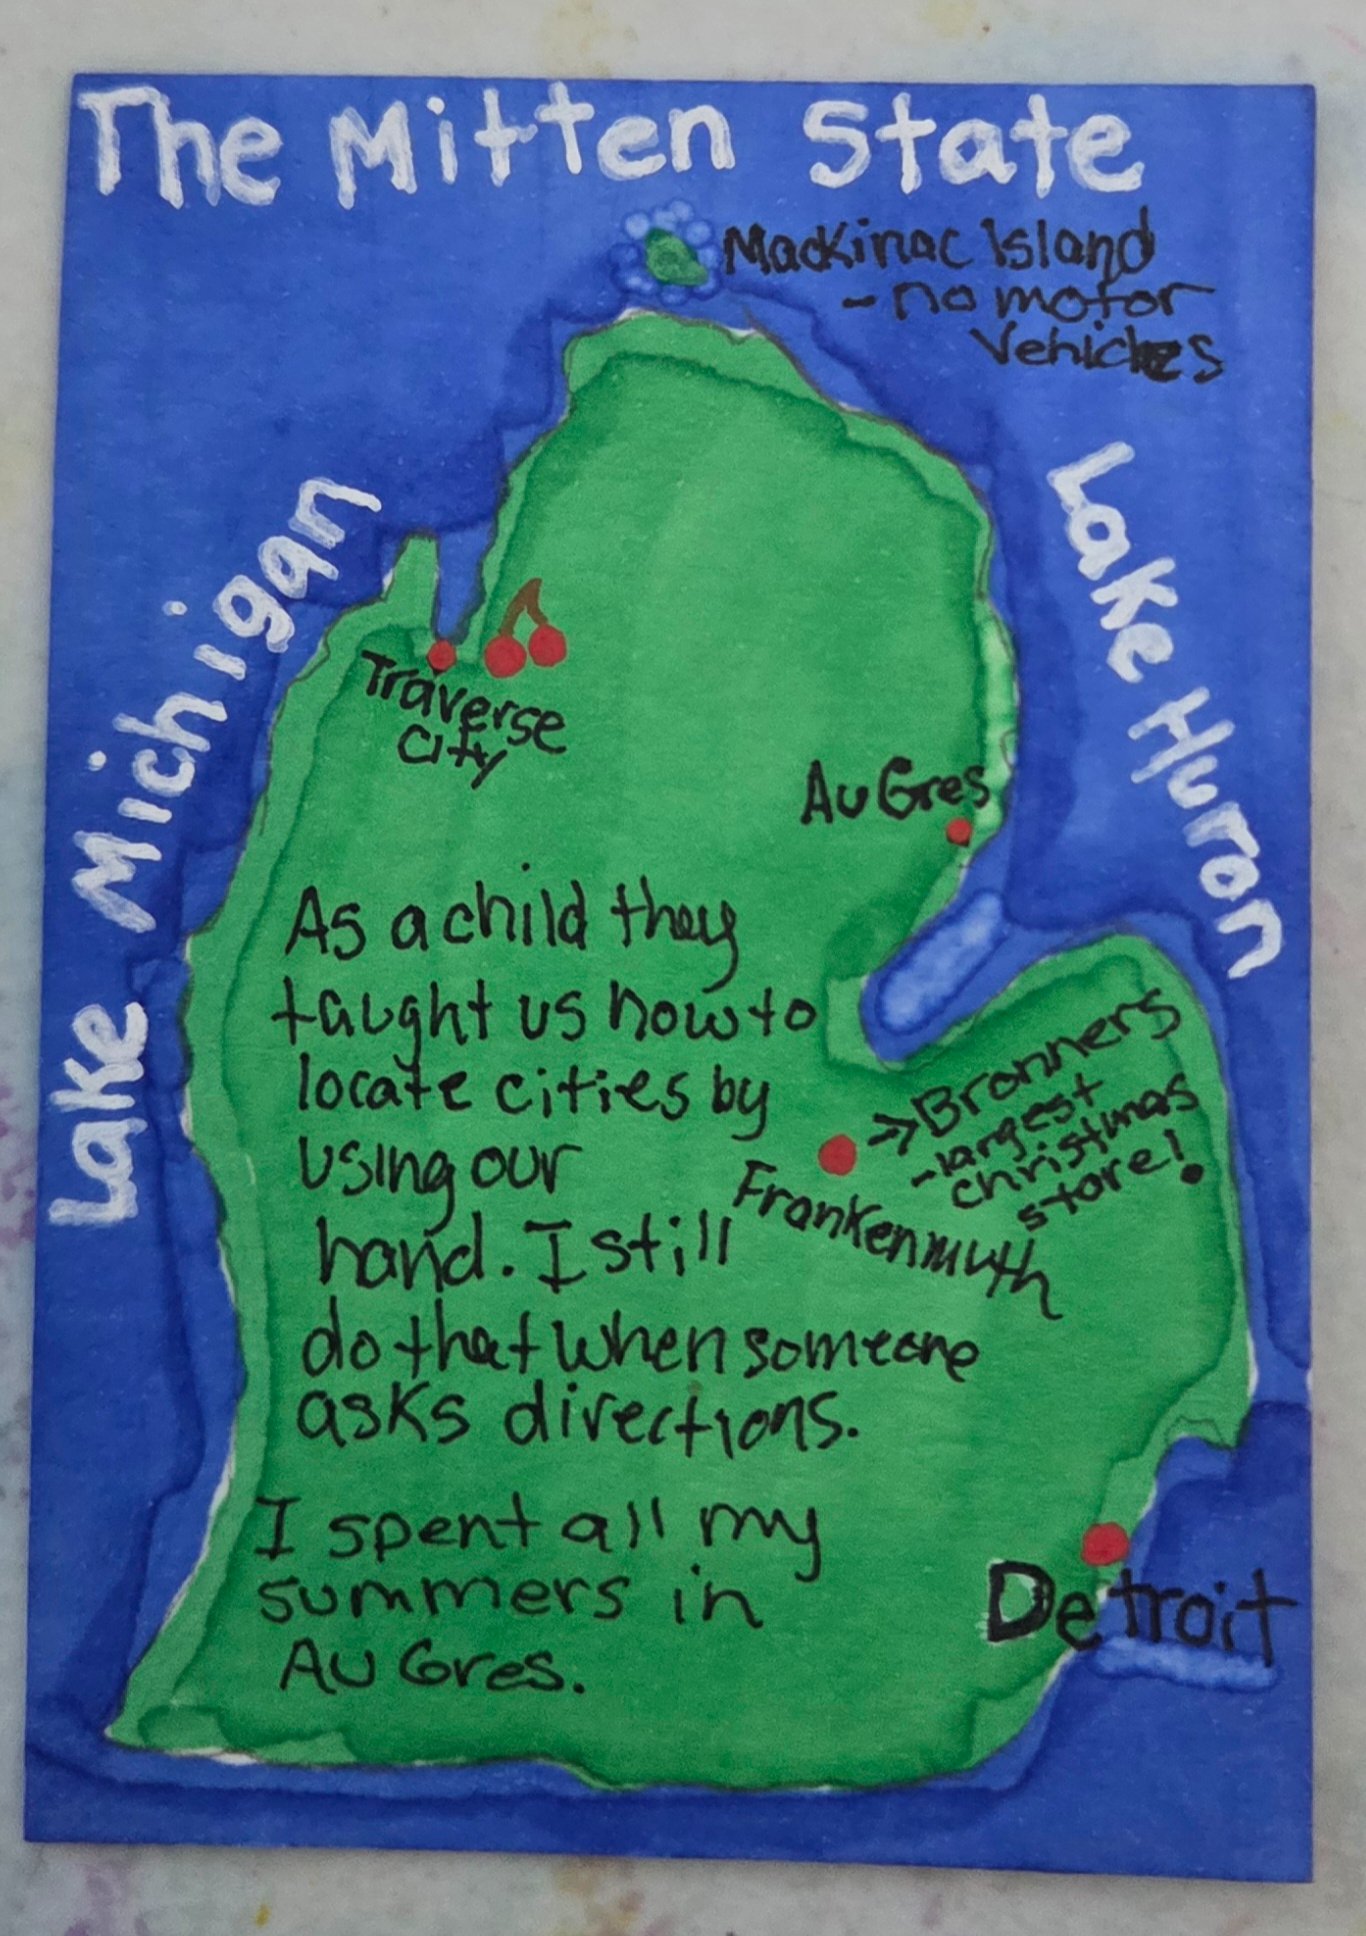 The Mitten State
Mackinac Island
- no motor
Vehicles
Lake Michigan
Lake Huron
Traverse
City
Au Gres
As a child they
taught us how to
locate cities by
using our
hand. I still
do that when someone
asks directions.
Bronners
-largest
christmas
store!
Frankenmuth
I spent all my
summers in
Au Gres.
Detroit